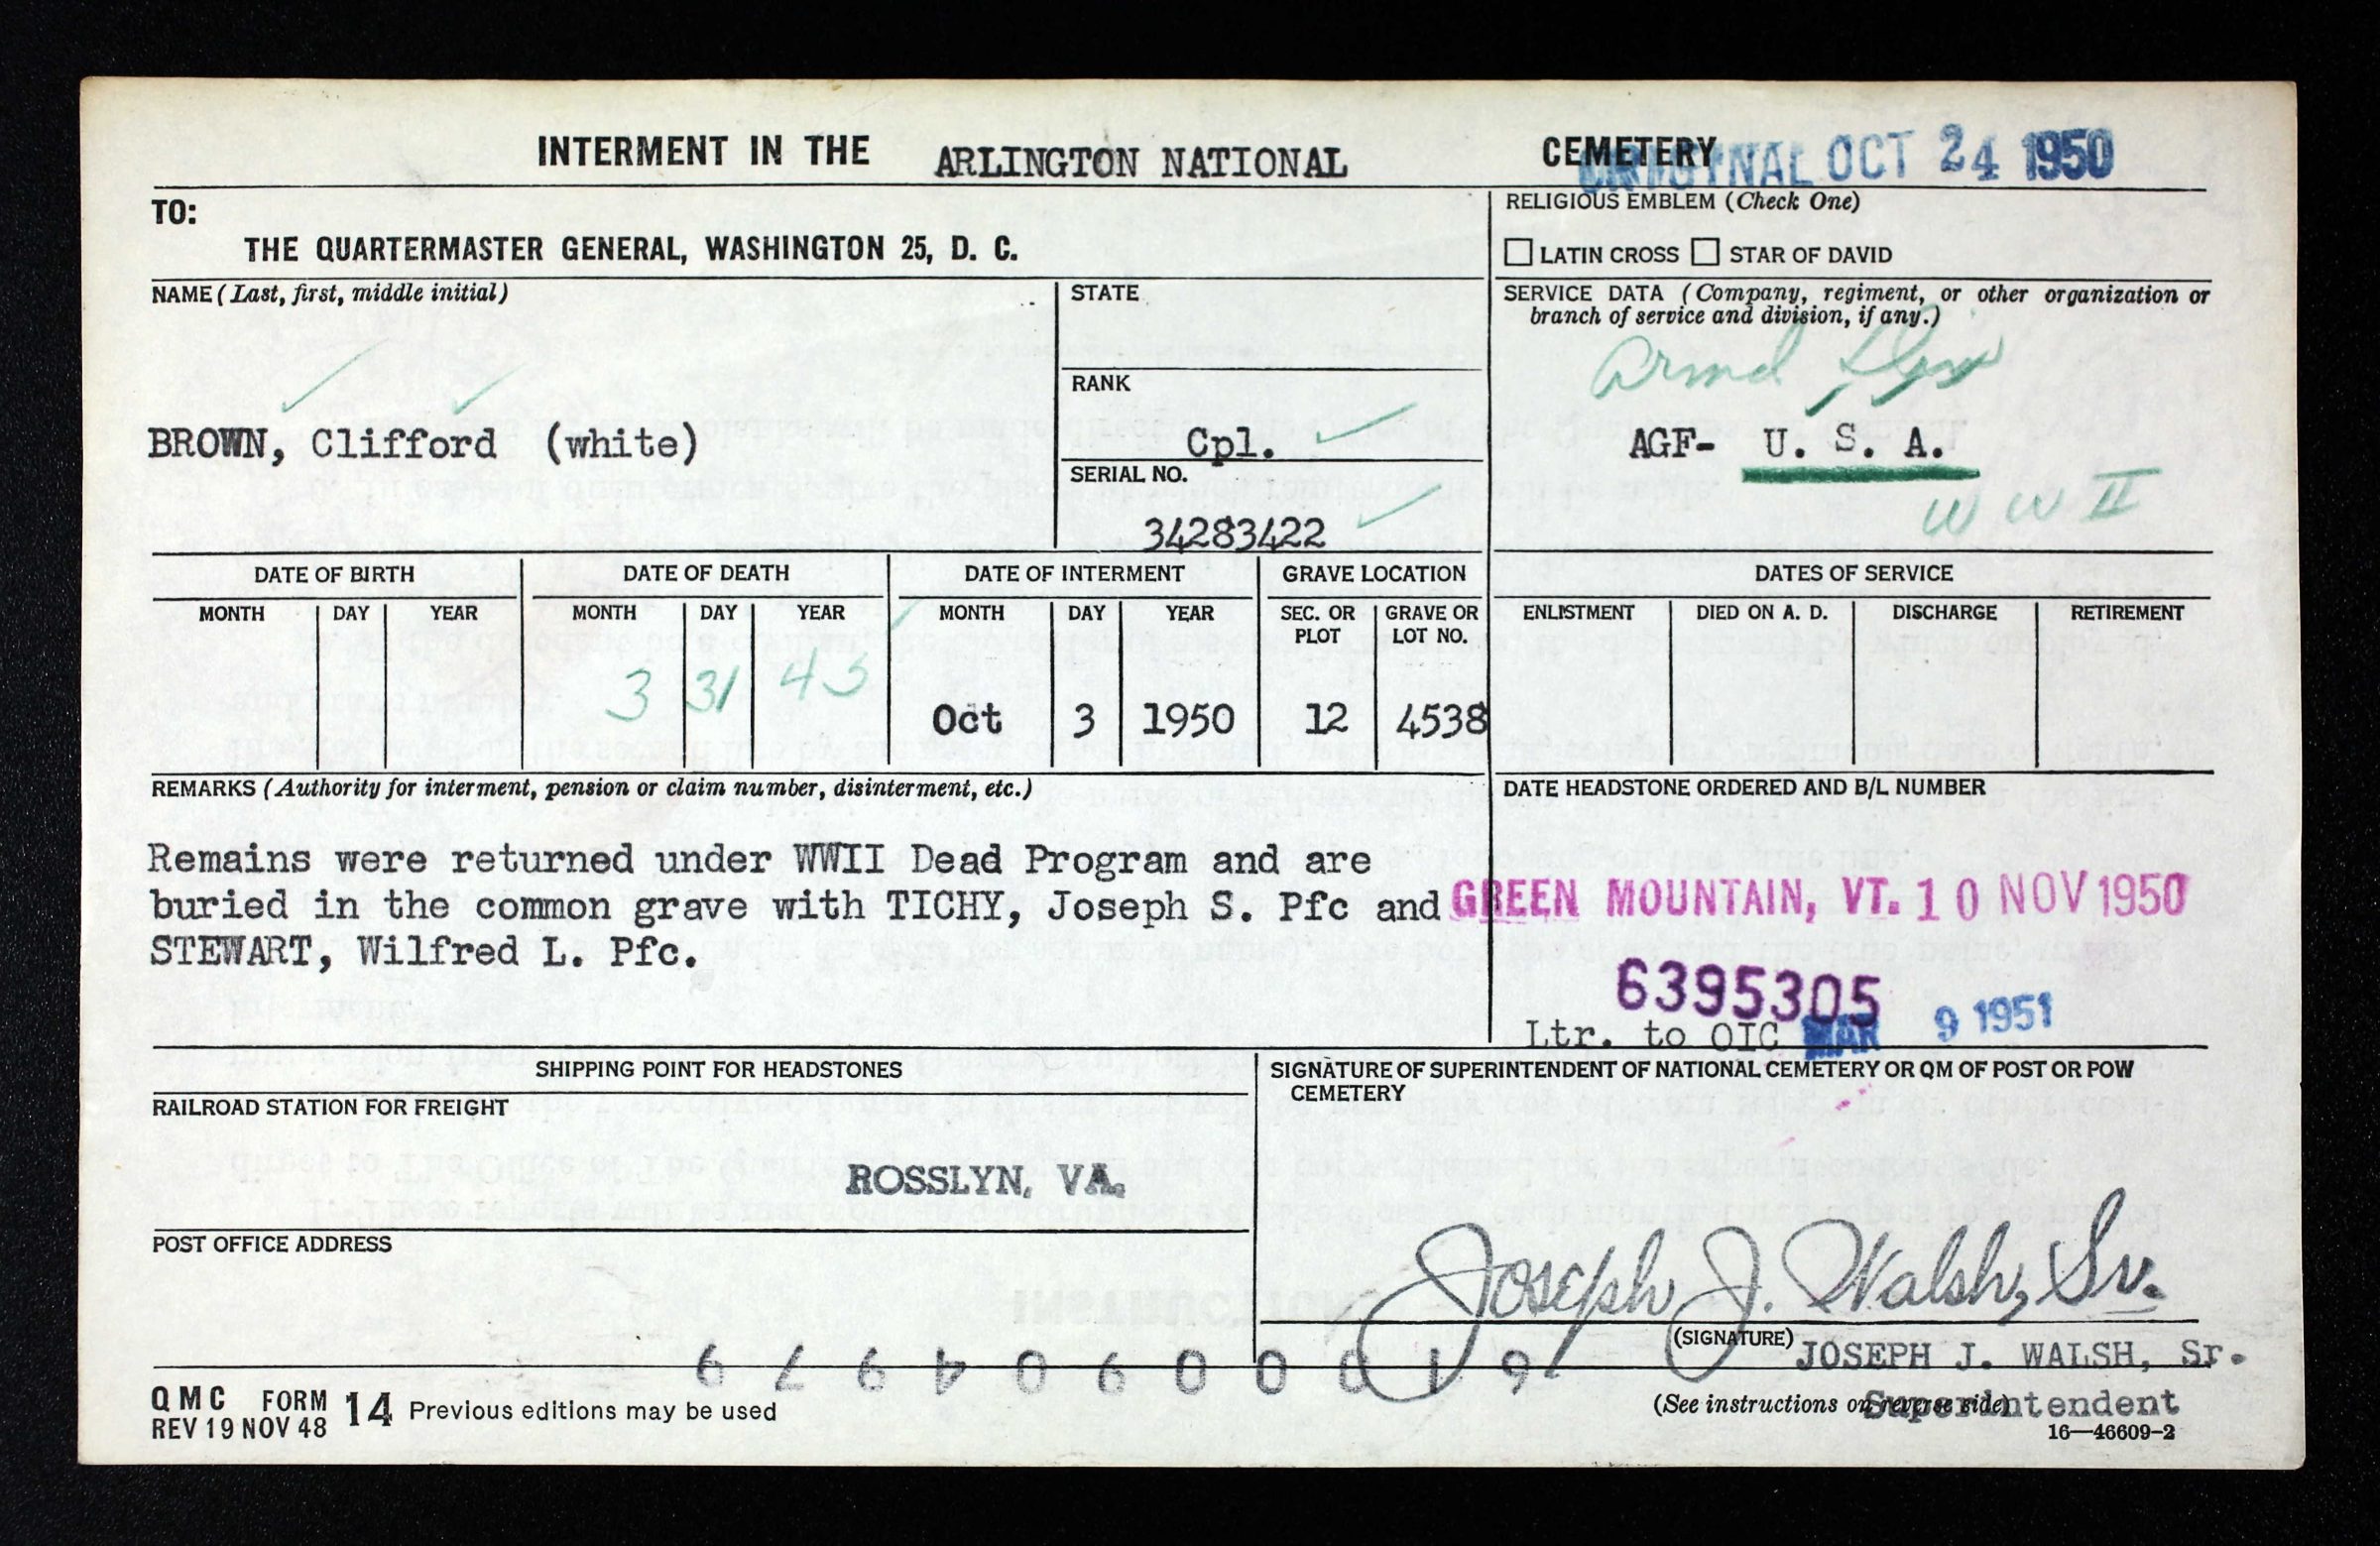 INTERMENT IN THE ARLINGTON NATIONAL CEMETERY
ORIGINAL OCT 24 1950
TO:
THE QUARTERMASTER GENERAL, WASHINGTON 25, D. C.
RELIGIOUS EMBLEM (Check One)
LATIN CROSS STAR OF DAVID
NAME (Last, first, middle initial)
BROWN, Clifford (white)
STATE
RANK
Cpl.
SERIAL NO.
34283422
SERVICE DATA (Company, regiment, or other organization or
branch of service and division, if any.)
Armd Div
AGF- U. S. A.
WW II
DATE OF BIRTH DATE OF DEATH DATE OF INTERMENT GRAVE LOCATION DATES OF SERVICE
MONTH DAY YEAR MONTH DAY YEAR MONTH DAY YEAR SEC. OR PLOT GRAVE OR LOT NO. ENLISTMENT DIED ON A. D. DISCHARGE RETIREMENT
3 31 45 Oct 3 1950 12 4538
REMARKS (Authority for interment, pension or claim number, disinterment, etc.)
Remains were returned under WWII Dead Program and are
buried in the common grave with TICHY, Joseph S. Pfc and
STEWART, Wilfred L. Pfc.
DATE HEADSTONE ORDERED AND B/L NUMBER
GREEN MOUNTAIN, VT. 10 NOV 1950
6395305
Ltr. to OIC MAR 9 1951
SHIPPING POINT FOR HEADSTONES
RAILROAD STATION FOR FREIGHT
ROSSLYN, VA.
POST OFFICE ADDRESS
SIGNATURE OF SUPERINTENDENT OF NATIONAL CEMETERY OR QM OF POST OR POW
CEMETERY
Joseph J. Walsh, Sr.
(SIGNATURE) JOSEPH J. WALSH, Sr.
Superintendent
(See instructions on reverse side)
16—46609-2
QMC FORM 14 Previous editions may be used
REV 19 NOV 48